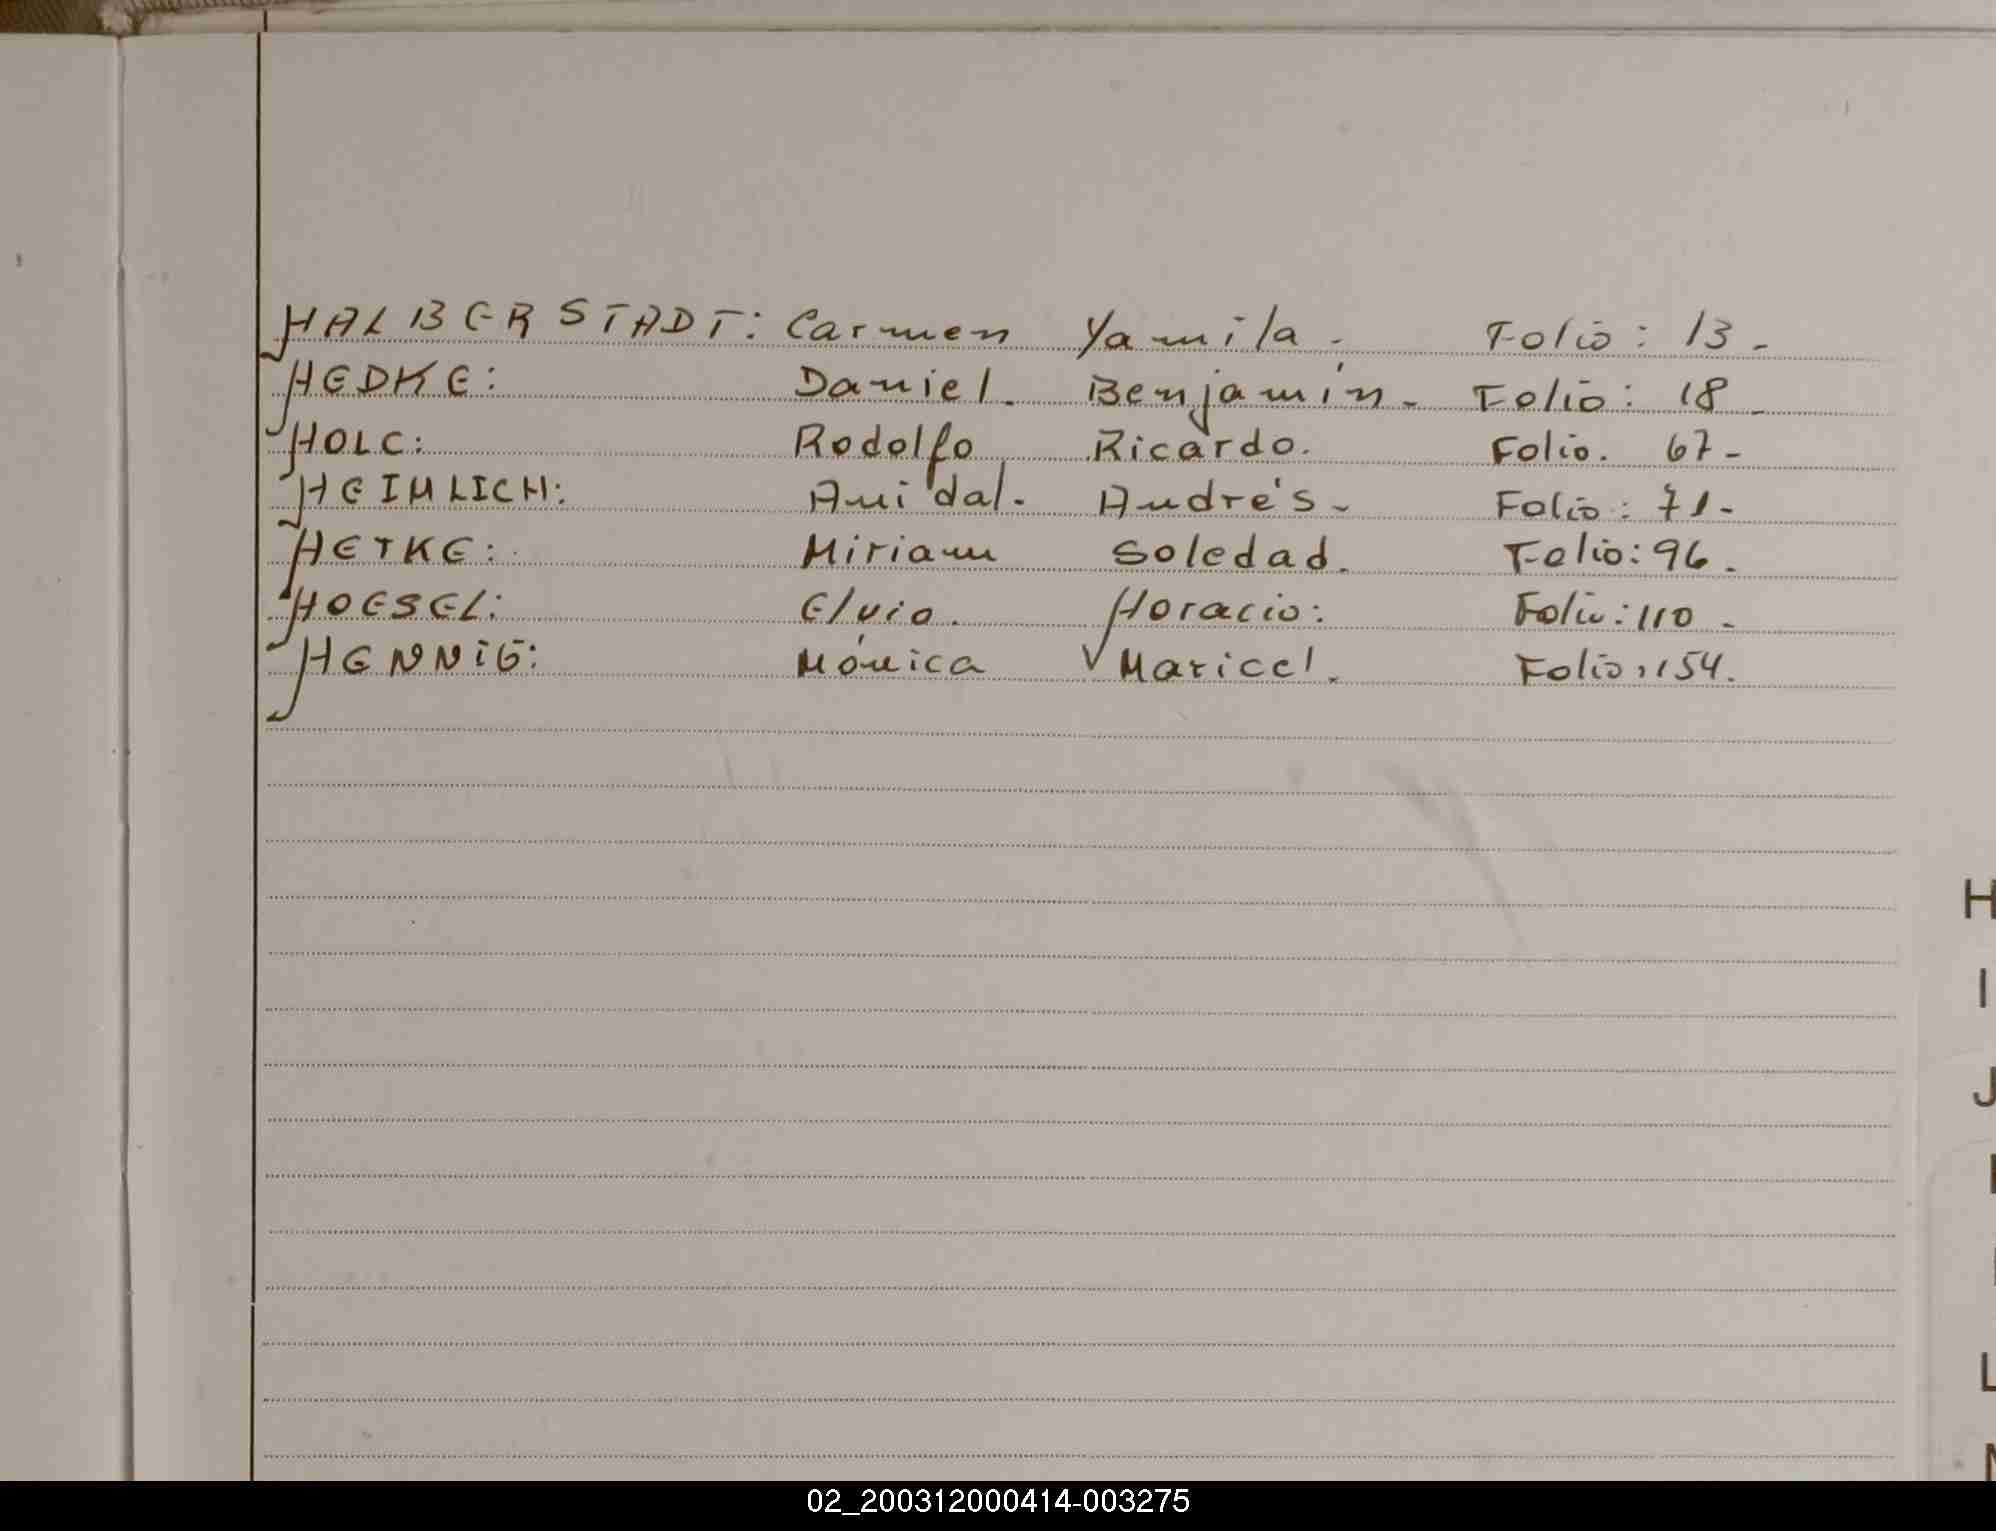 HALBERSTADT: Carmen Yamila. Folio: 13-
HEDKE: Daniel. Benjamín. Folio: 18-
HOLC: Rodolfo Ricardo. Folio. 67-
HEIMLICH: Anidal. Andrés- Folio: 71-
HETKE: Miriam Soledad. Folio: 96.
HOESEL: Elvio. Horacio: Folio: 110-
HENNIG: Mónica Maricel. Folio: 154.
H
I
J
L
02_200312000414-003275